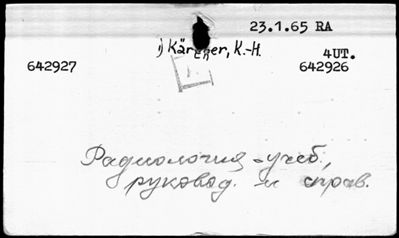 23.1.65 RA
1) Kärcher, K.-H.
4UT.
642927
642926
Радиология - учеб.,
руковод. и справ.